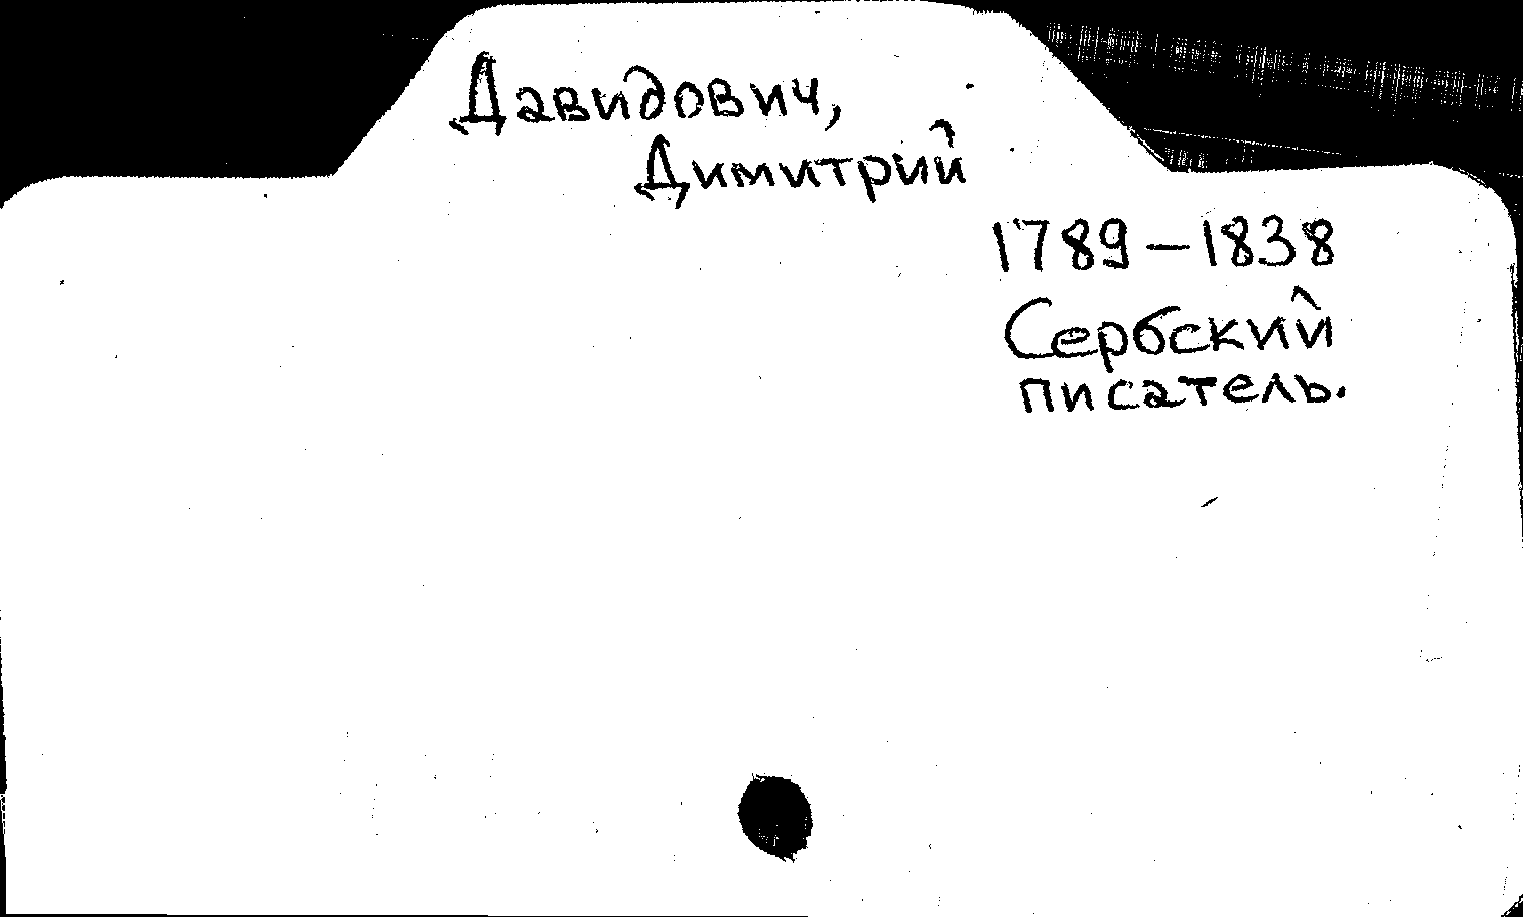 Давидович,
Димитрий
1789-1838
Сербский
писатель.